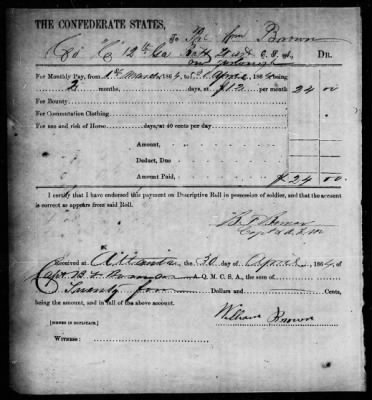 THE CONFEDERATE STATES,
To Pvt Wm Brown
Co "C" 12th Ga Batt C. S. A., DR.
on furlough
For Monthly Pay, from 1st March 1864, to 30 April 1864 being
2 months, days, at $12 per month 24 00
For Bounty
For Commutation Clothing.
For use and risk of Horse days, at 40 cents per day
Amount,
Deduct, Due
Amount Paid, $ 24 00
I certify that I have endorsed this payment on Descriptive Roll in possession of soldier, and that the account
is correct as appears from said Roll.
Capt & A. Q. M
Received at Atlanta the 30 day of April 1864, of
Capt. A. Q. M. C. S. A., the sum of
Twenty four Dollars and Cents,
being the amount, and in full of the above account.
William Brown
[SIGNED IN DUPLICATE.]
Witness: